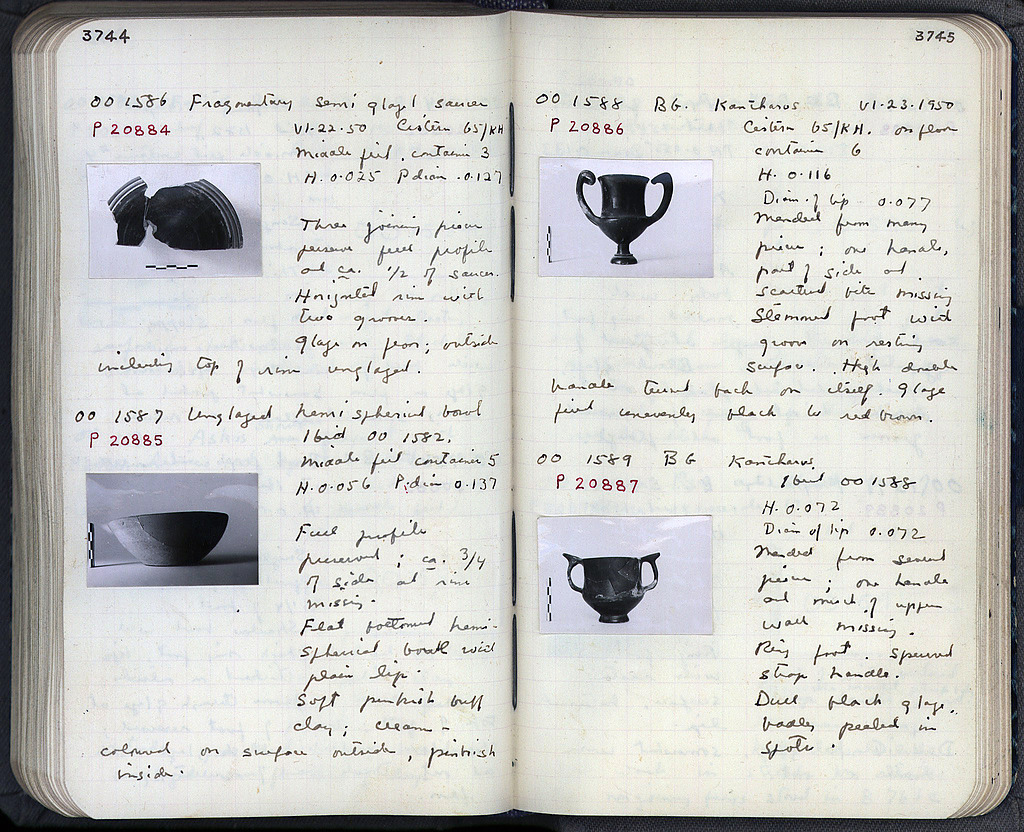 3744
OO 1586 Fragmentary semi glazd saucer
P 20884 VI-22-50 Cistern 65/KH
Middle fill, container 3
H. 0.025 P.diam. 0.127
Three joining pieces
preserve full profile
and ca. 1/2 of saucer.
Horizontal rim with
two grooves.
Glaze on floor; outside
including top of rim unglazed.
OO 1587 Unglazed hemispherical bowl
P 20885 Ibid OO 1582,
Middle fill container 5
H. 0.056 P.diam 0.137
Full profile
preserved; ca. 3/4
of side and rim
missing.
Flat bottomed hemi-
spherical bowl with
plain lip.
Soft pinkish buff
clay; cream-
coloured on surface outside, pinkish
inside.
3745
OO 1588 BG. Kantharos. VI-23-1950
P 20886 Cistern 65/KH. on floor
container 6
H. 0.116
Diam. of lip 0.077
Mended from many
pieces; one handle,
part of side and
scattered bits missing
Stemmed foot with
groove on resting
surface. High double
handle turned back on itself. Glaze
fired unevenly black to red brown.
OO 1589 BG Kantharos.
P 20887 Ibid OO 1588
H. 0.072
Diam of lip 0.072
Mended from several
pieces; one handle
and much of upper
wall missing.
Ring foot. Spurred
strap handle.
Dull black glaze,
badly peeled in
spots.